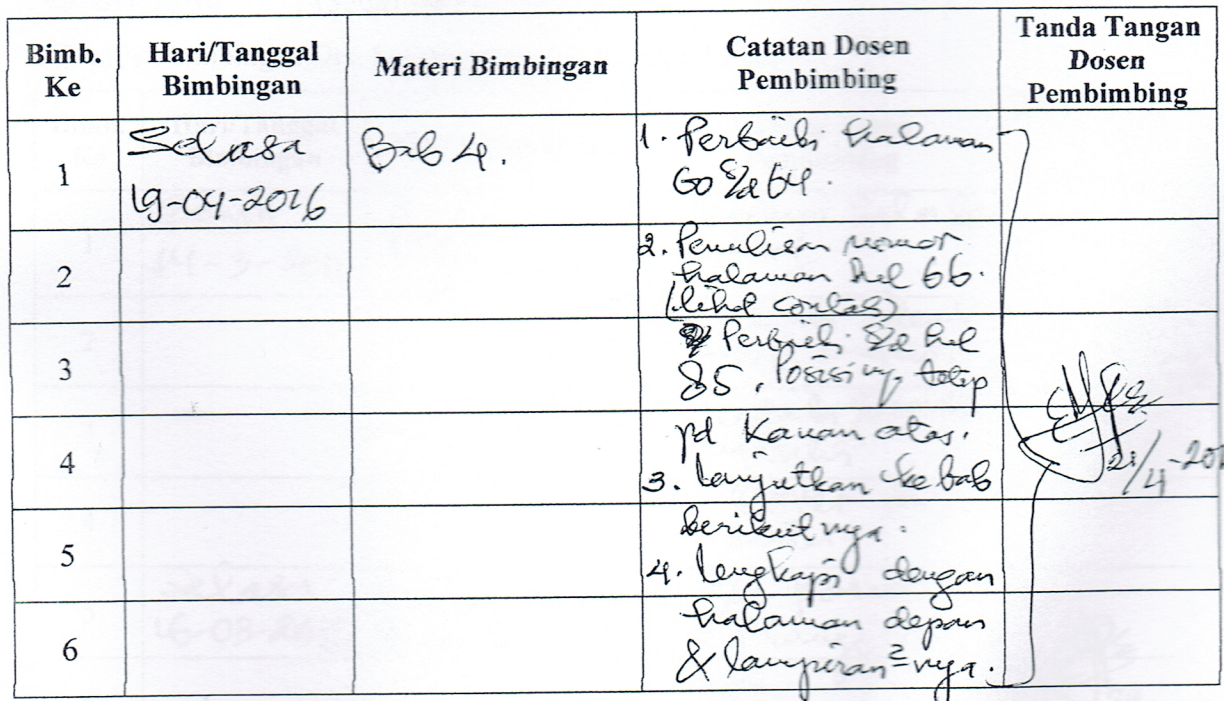 Bimb. Ke
Hari/Tanggal Bimbingan
Materi Bimbingan
Catatan Dosen Pembimbing
Tanda Tangan Dosen Pembimbing
1
Selasa
19-04-2016
Bab 4.
1. Perbaiki halaman
60 s/d 64.
2
2. Penulisan nomor
halaman hal 66.
(lihat contoh)
3
Perbaiki s/d hal
85. Posisinya tetap
4
pd Kanan atas.
3. Lanjutkan ke bab
21/4-201
5
berikutnya.
4. Lengkapi dengan
6
halaman depan
& lampiran²nya.